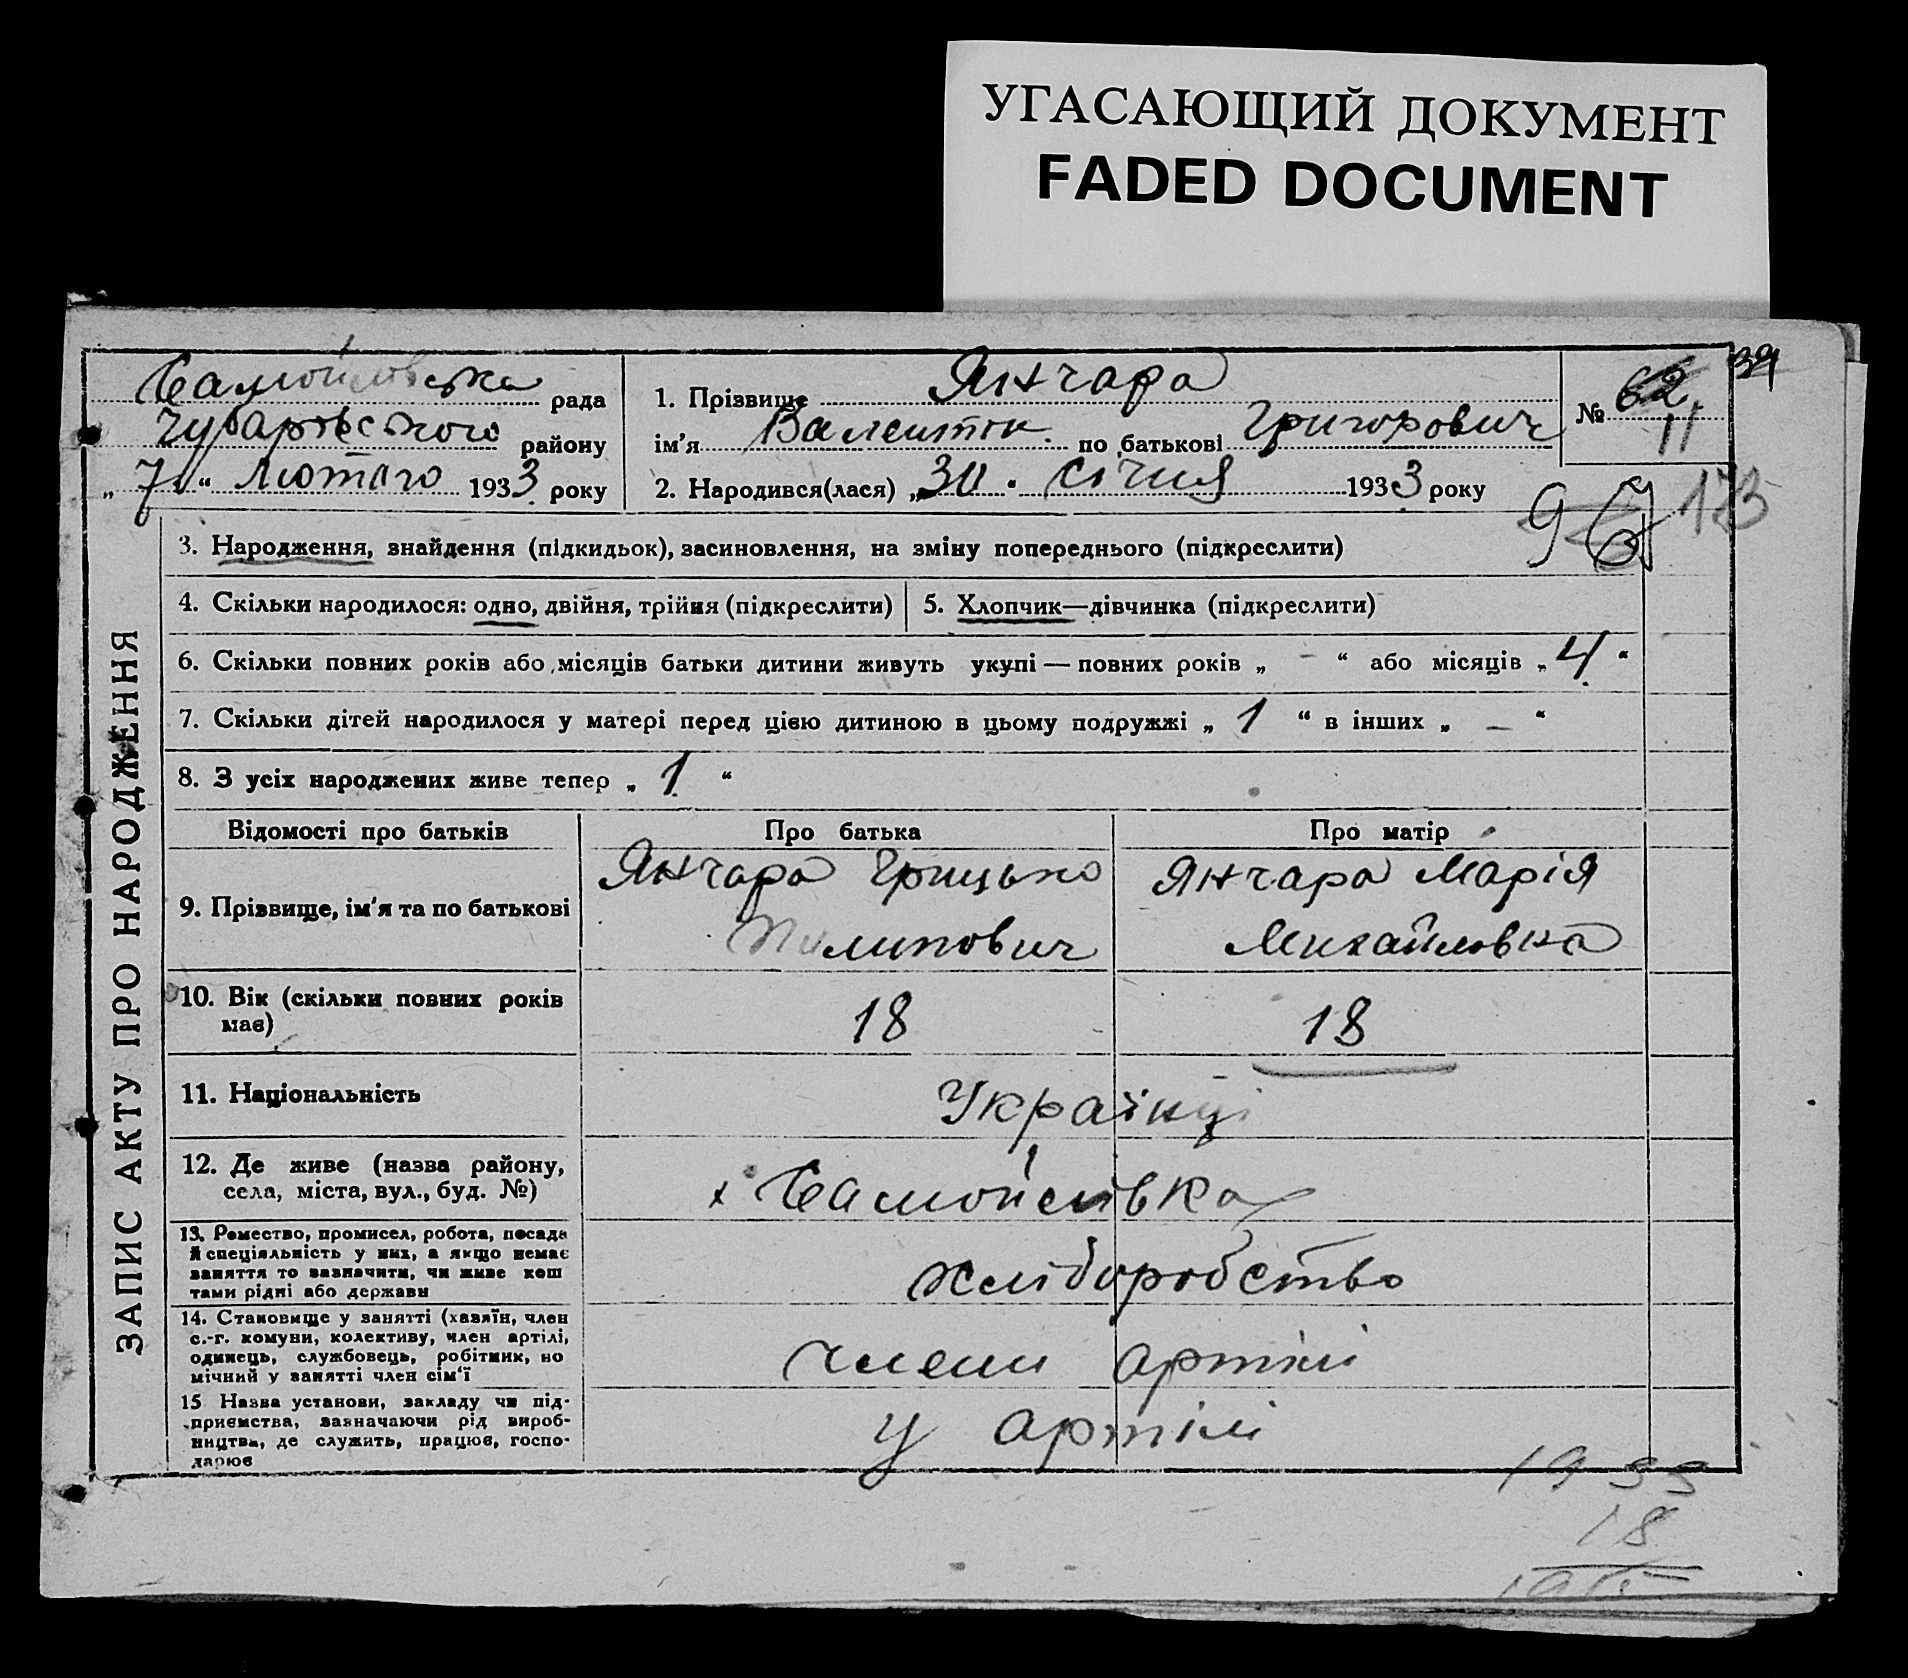 УГАСАЮЩИЙ ДОКУМЕНТ
FADED DOCUMENT
Самойлівська рада
Чубарівського району
„7“ лютого 1933 року
1. Прізвище Янчара
ім'я Валентін по батькові Григорович
2. Народився(лася) „30“ січня 1933 року
№ 62
11
39
173
3. Народження, знайдення (підкидьок), засиновлення, на зміну попереднього (підкреслити)
9
4. Скільки народилося: одно, двійня, трійня (підкреслити)
5. Хлопчик—дівчинка (підкреслити)
6. Скільки повних років або місяців батьки дитини живуть укупі — повних років „ – “ або місяців „ 4 “
7. Скільки дітей народилося у матері перед цією дитиною в цьому подружжі „ 1 “ в інших „ – “
8. З усіх народжених живе тепер „ 1 “
ЗАПИС АКТУ ПРО НАРОДЖЕННЯ
Відомості про батьків
Про батька
Про матір
9. Прізвище, ім'я та по батькові
Янчара Грицько
Пилипович
Янчара Марія
Михайловна
10. Вік (скільки повних років
має)
18
18
11. Національність
Українці
12. Де живе (назва району,
села, міста, вул., буд. №)
х Самойлівка
13. Ремество, промисел, робота, посада
й спеціяльність у них, а якщо немає
заняття то зазначити, чи живе кош
тами рідні або держави
хліборобство
14. Становище у занятті (хазяїн, член
с.-г. комуни, колективу, член артілі,
одинець, службовець, робітник, по
мічний у занятті член сім'ї
члени артілі
15 Назва установи, закладу чи під-
приємства, зазначаючи рід вироб-
ництва, де служить, працює, госпо-
дарює
у артілі
1933
18
1915